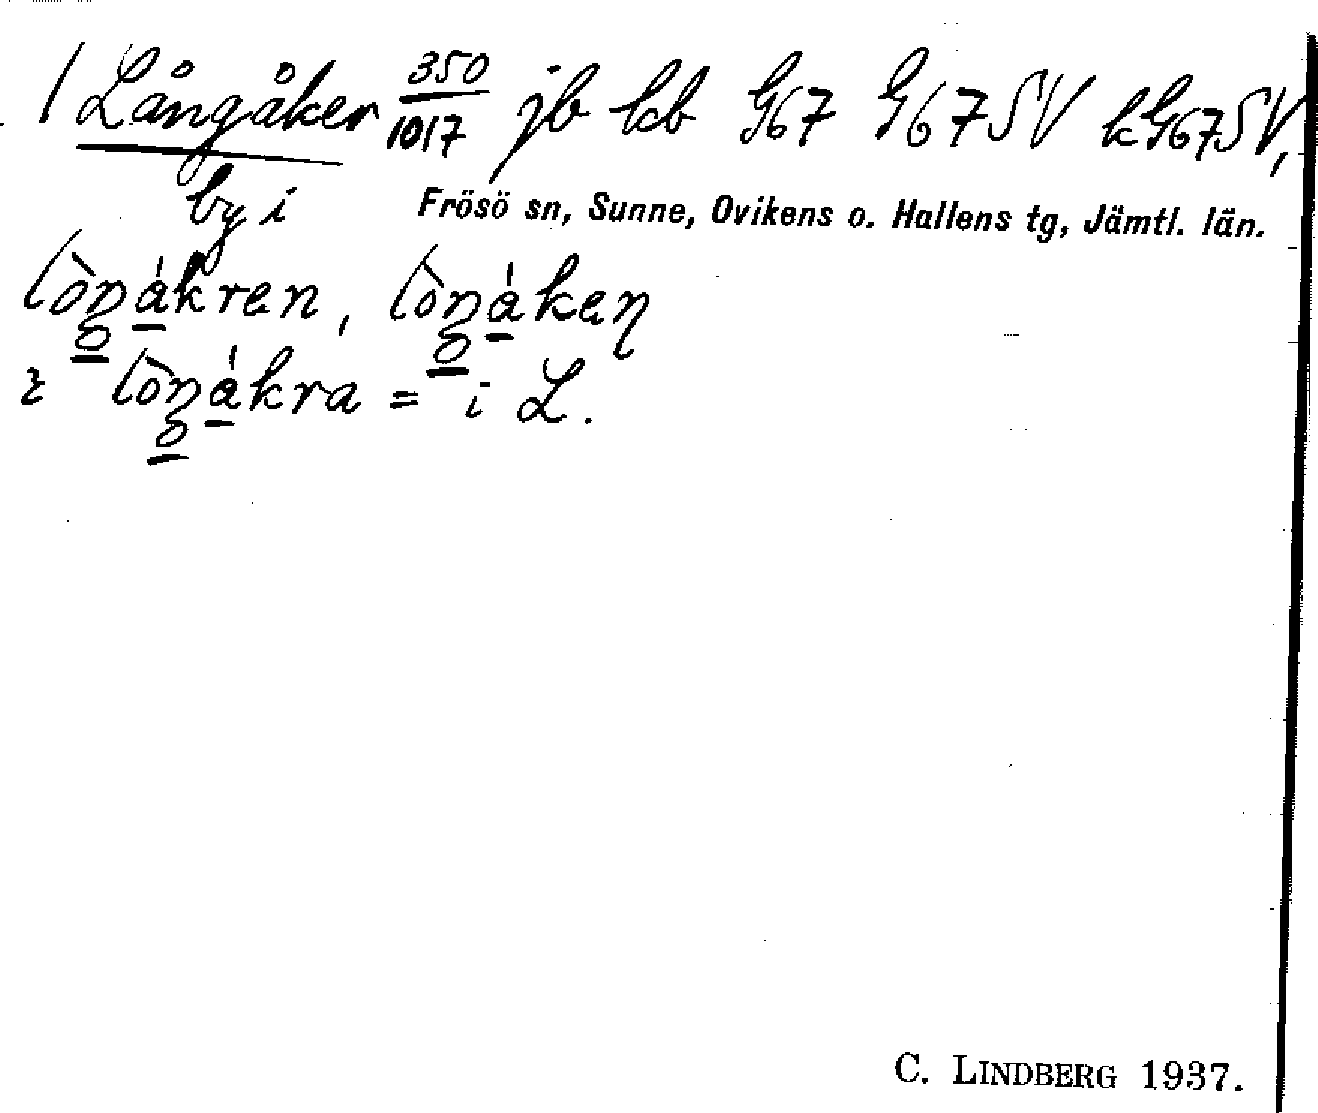 1 Långåker 350/1017 jb kb G67 G67SV kG67SV,
by i Frösö sn, Sunne, Ovikens o. Hallens tg, Jämtl. län.
lòŋákren, lòŋákeη
i lòŋákra = i L.
C. LINDBERG 1937.